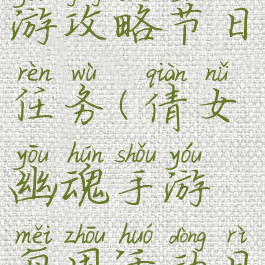 游攻略节日
rèn wù qiàn nǚ
任务(倩女
yōu hún shǒu yóu
幽魂手游
měi zhōu huó dòng rì
每周活动日